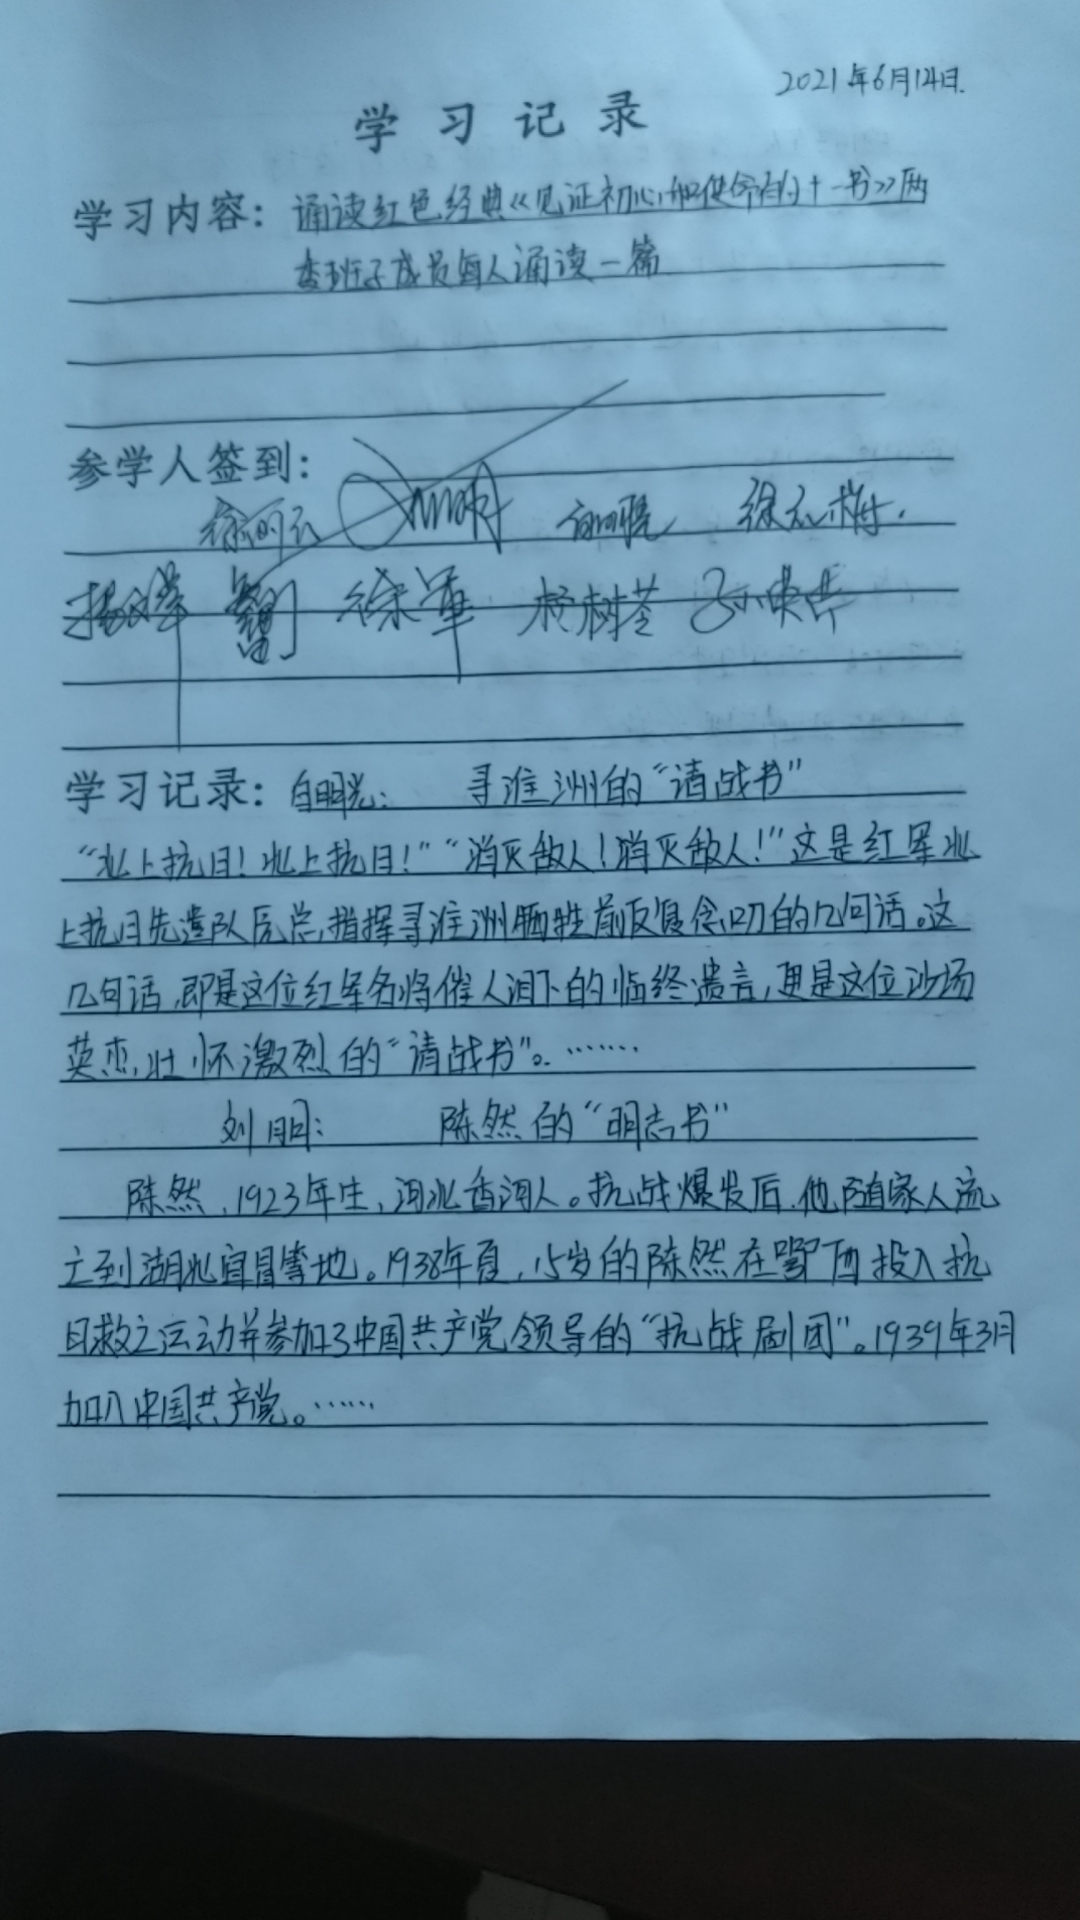 2021年6月14日.
学习记录
学习内容：诵读红色经典《见证初心和使命的十一书》两
委班子成员每人诵读一篇
参学人签到：
徐军 杨树苓
学习记录：白明光： 寻淮洲的“请战书”
“北上抗日！北上抗日！”“消灭敌人！消灭敌人！”这是红军北
上抗日先遣队 总指挥寻淮洲牺牲前反复念叨的几句话。这
几句话，即是这位红军名将催人泪下的临终遗言，更是这位沙场
英杰壮怀激烈的“请战书”。……
刘明： 陈然的“明志书”
陈然，1923年生，河北香河人。抗战爆发后，他随家人流
亡到湖北宜昌等地。1938年夏，15岁的陈然在鄂西投入抗
日救亡运动并参加了中国共产党领导的“抗战剧团”。1939年3月
加入中国共产党。……